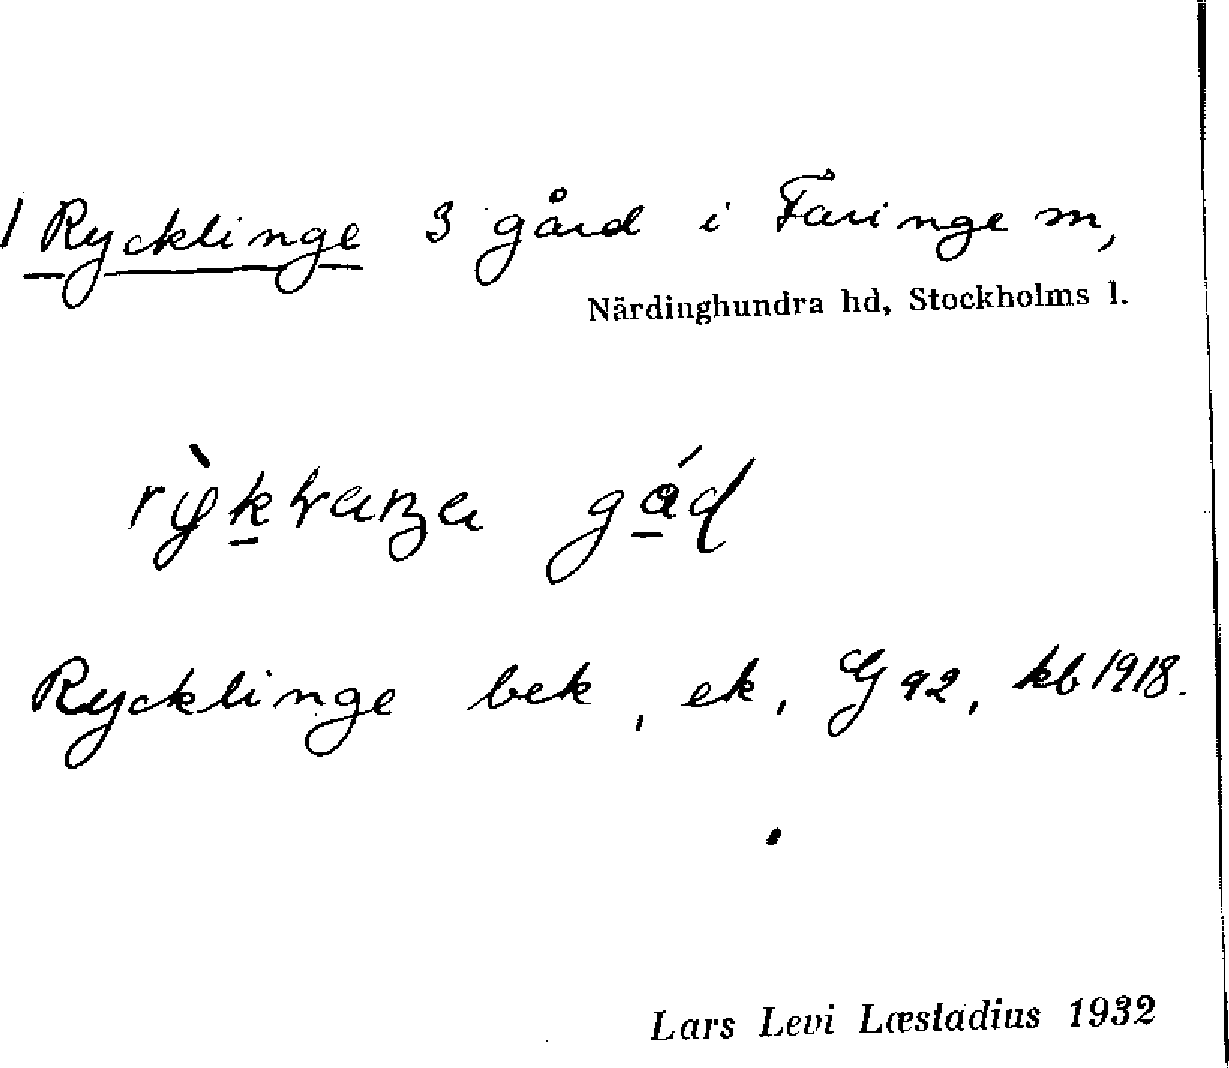 1 Rycklinge 3 gård i Faringe sn,
Närdinghundra hd, Stockholms l.
Rycklinge bek, ek, G 92, kb 1918.
Lars Levi Læstadius 1932